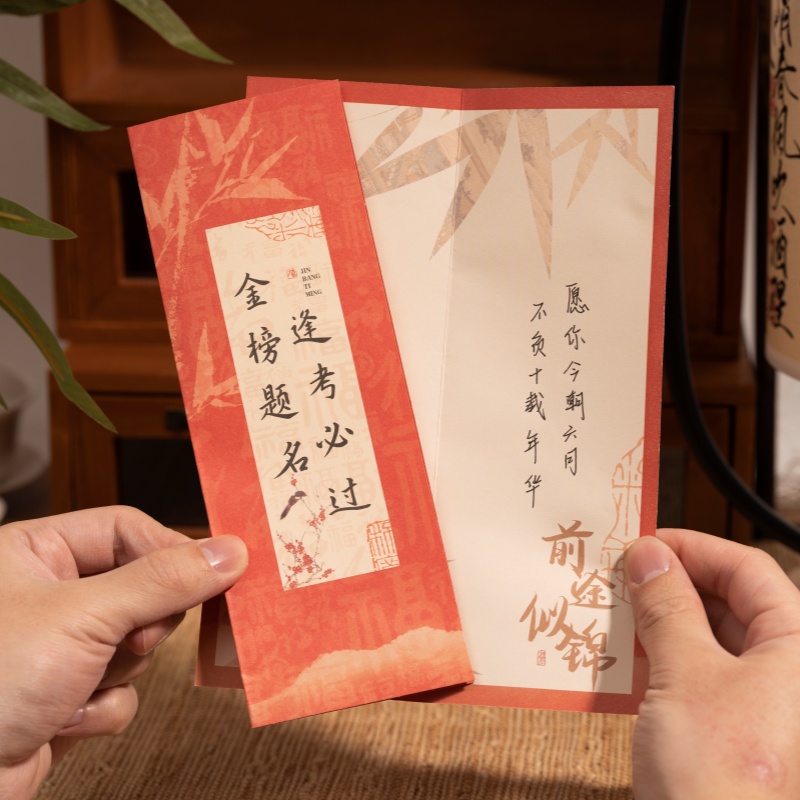 逢考必过
金榜题名
JIN
BANG
TI
MING
愿你今朝六月
不负十载年华
前途
似锦
有春风大酒醒